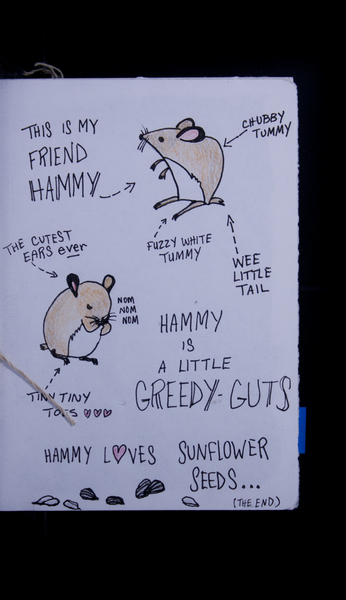 THIS IS MY
FRIEND
HAMMY
CHUBBY
TUMMY
FUZZY WHITE
TUMMY
WEE
LITTLE
TAIL
THE CUTEST
EARS ever
NOM
NOM
NOM
TINY TINY
TOES ♡♡♡
HAMMY
IS
A LITTLE
GREEDY-GUTS
HAMMY L♡VES SUNFLOWER
SEEDS...
(THE END)